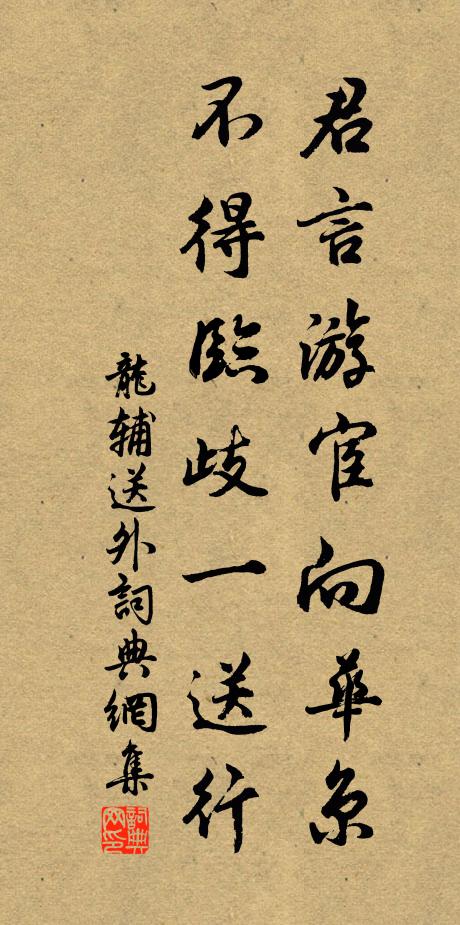 君言游宦向華京
不得臨歧一送行
龍輔送外詞典網集
詞典網印